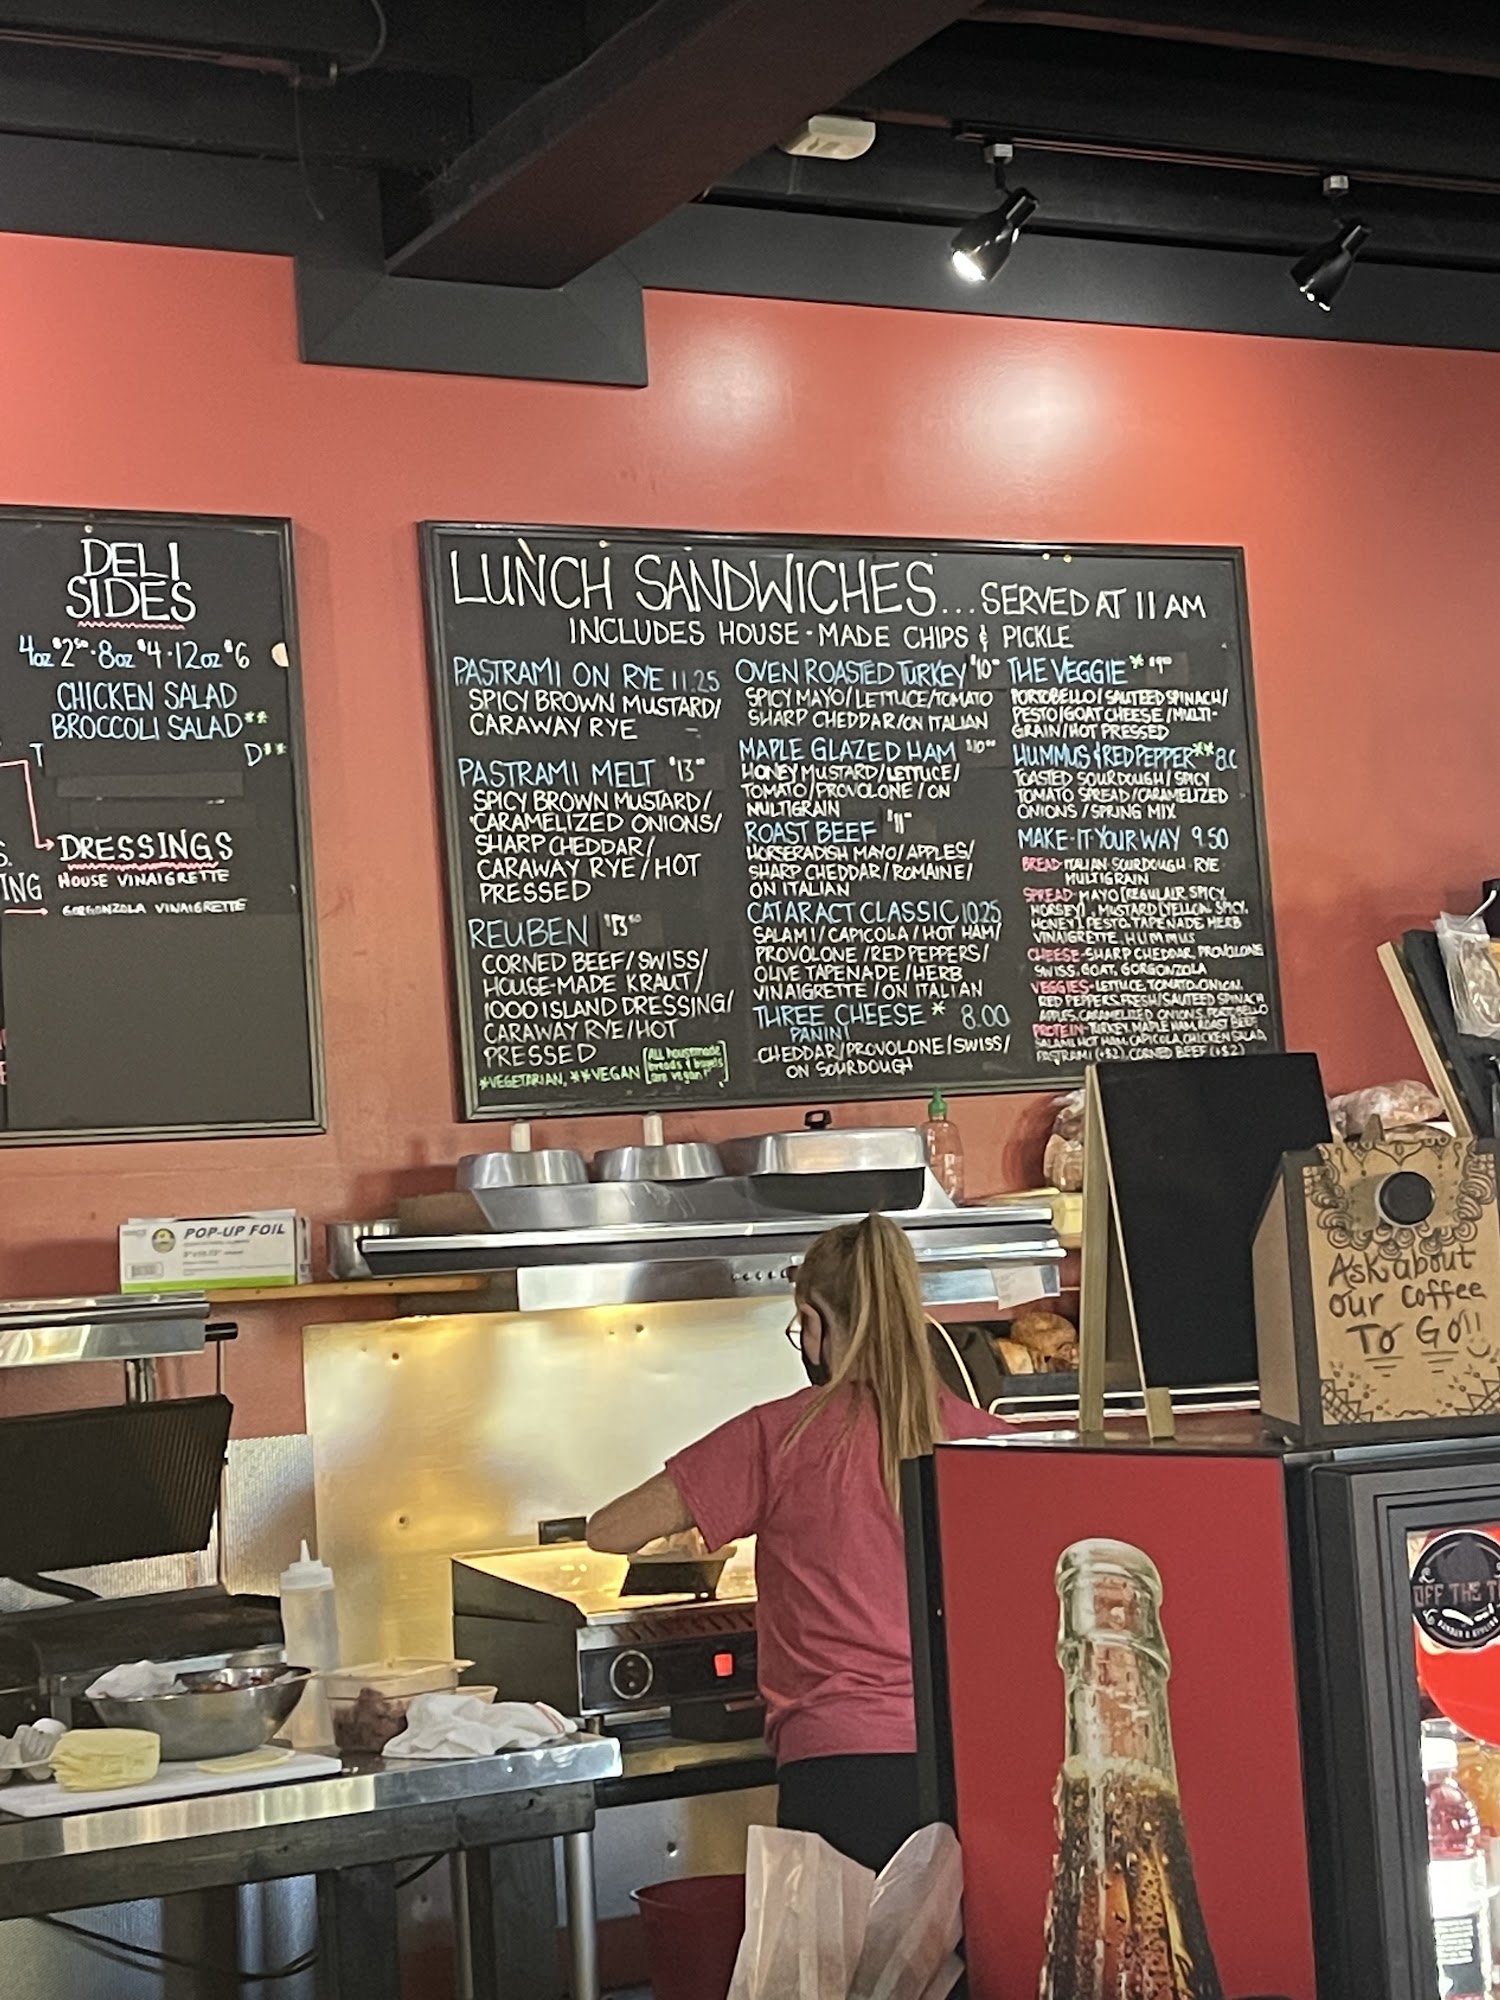 DELI
SIDES
4oz $2⁵⁰ · 8oz $4 · 12oz $6
CHICKEN SALAD
BROCCOLI SALAD**
T D**
DRESSINGS
ING HOUSE VINAIGRETTE
GORGONZOLA VINAIGRETTE
LUNCH SANDWICHES... SERVED AT 11 AM
INCLUDES HOUSE-MADE CHIPS & PICKLE
PASTRAMI ON RYE 11.25
SPICY BROWN MUSTARD/
CARAWAY RYE
PASTRAMI MELT $13⁰⁰
SPICY BROWN MUSTARD/
CARAMELIZED ONIONS/
SHARP CHEDDAR/
CARAWAY RYE/HOT
PRESSED
REUBEN $13⁵⁰
CORNED BEEF/SWISS/
HOUSE-MADE KRAUT/
1000 ISLAND DRESSING/
CARAWAY RYE/HOT
PRESSED
*VEGETARIAN, **VEGAN
ALL housemade
breads & bagels
are vegan!
OVEN ROASTED TURKEY $10⁰⁰
SPICY MAYO/LETTUCE/TOMATO
SHARP CHEDDAR/ON ITALIAN
MAPLE GLAZED HAM $10⁰⁰
HONEY MUSTARD/LETTUCE/
TOMATO/PROVOLONE/ON
MULTIGRAIN
ROAST BEEF $11
HORSERADISH MAYO/APPLES/
SHARP CHEDDAR/ROMAINE/
ON ITALIAN
CATARACT CLASSIC 10.25
SALAMI/CAPICOLA/HOT HAM/
PROVOLONE/RED PEPPERS/
OLIVE TAPENADE/HERB
VINAIGRETTE/ON ITALIAN
THREE CHEESE* 8.00
PANINI
CHEDDAR/PROVOLONE/SWISS/
ON SOURDOUGH
THE VEGGIE*
PORTOBELLO/SAUTEED SPINACH/
PESTO/GOAT CHEESE/MULTI-
GRAIN/HOT PRESSED
HUMMUS & RED PEPPER**
TOASTED SOURDOUGH/SPICY
TOMATO SPREAD/CARAMELIZED
ONIONS/SPRING MIX
MAKE-IT-YOUR-WAY 9.50
BREAD-ITALIAN SOURDOUGH RYE
MULTIGRAIN
SPREAD-MAYO [REGULAR, SPICY,
HORSEY], MUSTARD [YELLOW, SPICY,
HONEY], PESTO, TAPENADE, HERB
VINAIGRETTE, HUMMUS
CHEESE-SHARP CHEDDAR, PROVOLONE
SWISS, GOAT, GORGONZOLA
VEGGIES-LETTUCE, TOMATO, ONION,
RED PEPPERS, FRESH/SAUTEED SPINACH
APPLES, CARAMELIZED ONIONS, PORTOBELLO
PROTEIN-TURKEY, MAPLE HAM, ROAST BEEF
SALAMI, HOT HAM, CAPICOLA, CHICKEN SALAD,
PASTRAMI (+$2), CORNED BEEF (+$2)
POP-UP FOIL
Ask about
our coffee
TO GO!!
OFF THE T